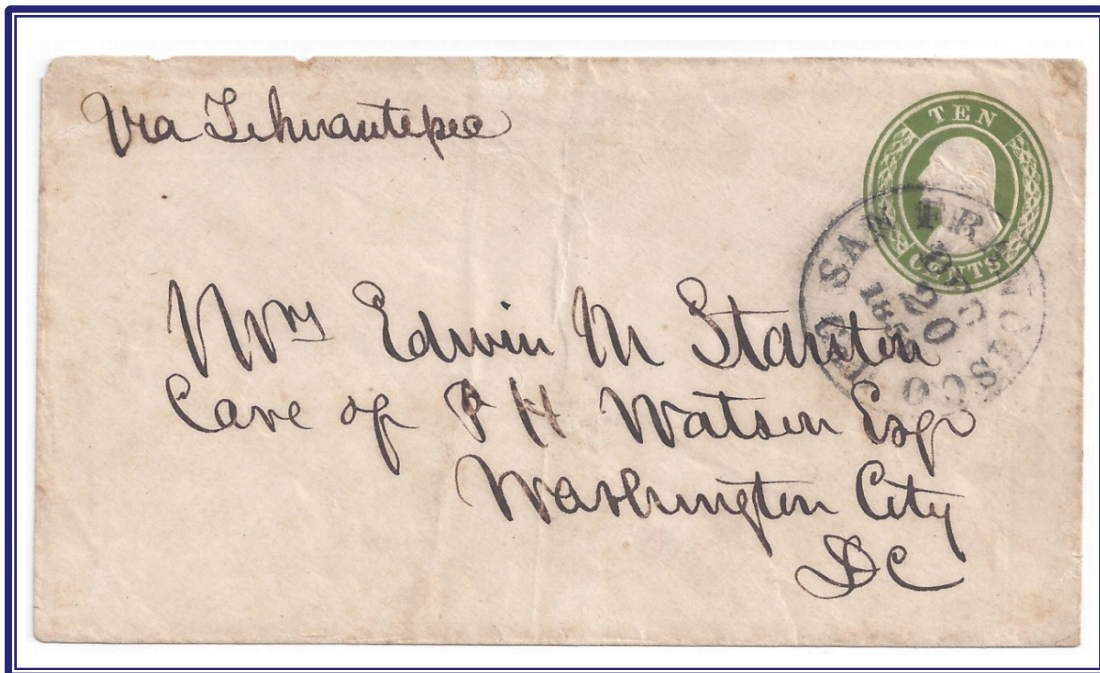 Via Tehuantepec
TEN
CENTS
SAN FRANCISCO CAL
DEC
20
185
Mrs Edwin M Stanton
Care of P H Watson Esqr
Washington City
DC